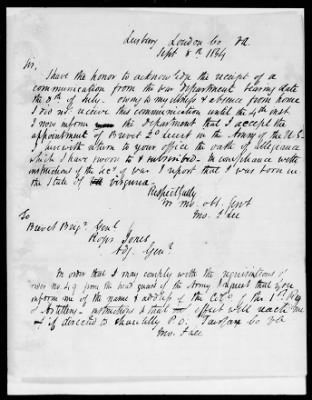 Leesburg Loudon Co Va
Sept 8th 1834
Sir,
I have the honor to acknowledge the receipt of a
communication from the War Department bearing date
the of July. owing to my illness & absence from home
I did not receive this communication until the 4th inst
I now inform the Department that I accept the
appointment of Brevet 2d Lieut in the Army of the U.S.
I herewith return to your office the oath of allegiance
which I have sworn to & subscribed. In compliance with
instructions of the Secy of War I report that I was born in
the State of Virginia.
Respectfully
Yr mo. obt. Servt
Jno. F. Lee
To
Brevet Brigr Genl
Roger Jones
Adj. Genl
In order that I may comply with the requisitions of
order No. 49 from the head quars of the Army I request that you
inform me of the name & address of the Col. of the 1st Reg
of Artillery - instructions to that effect will reach me
if directed to P.O. Fairfax Co Va
Jno. F. Lee